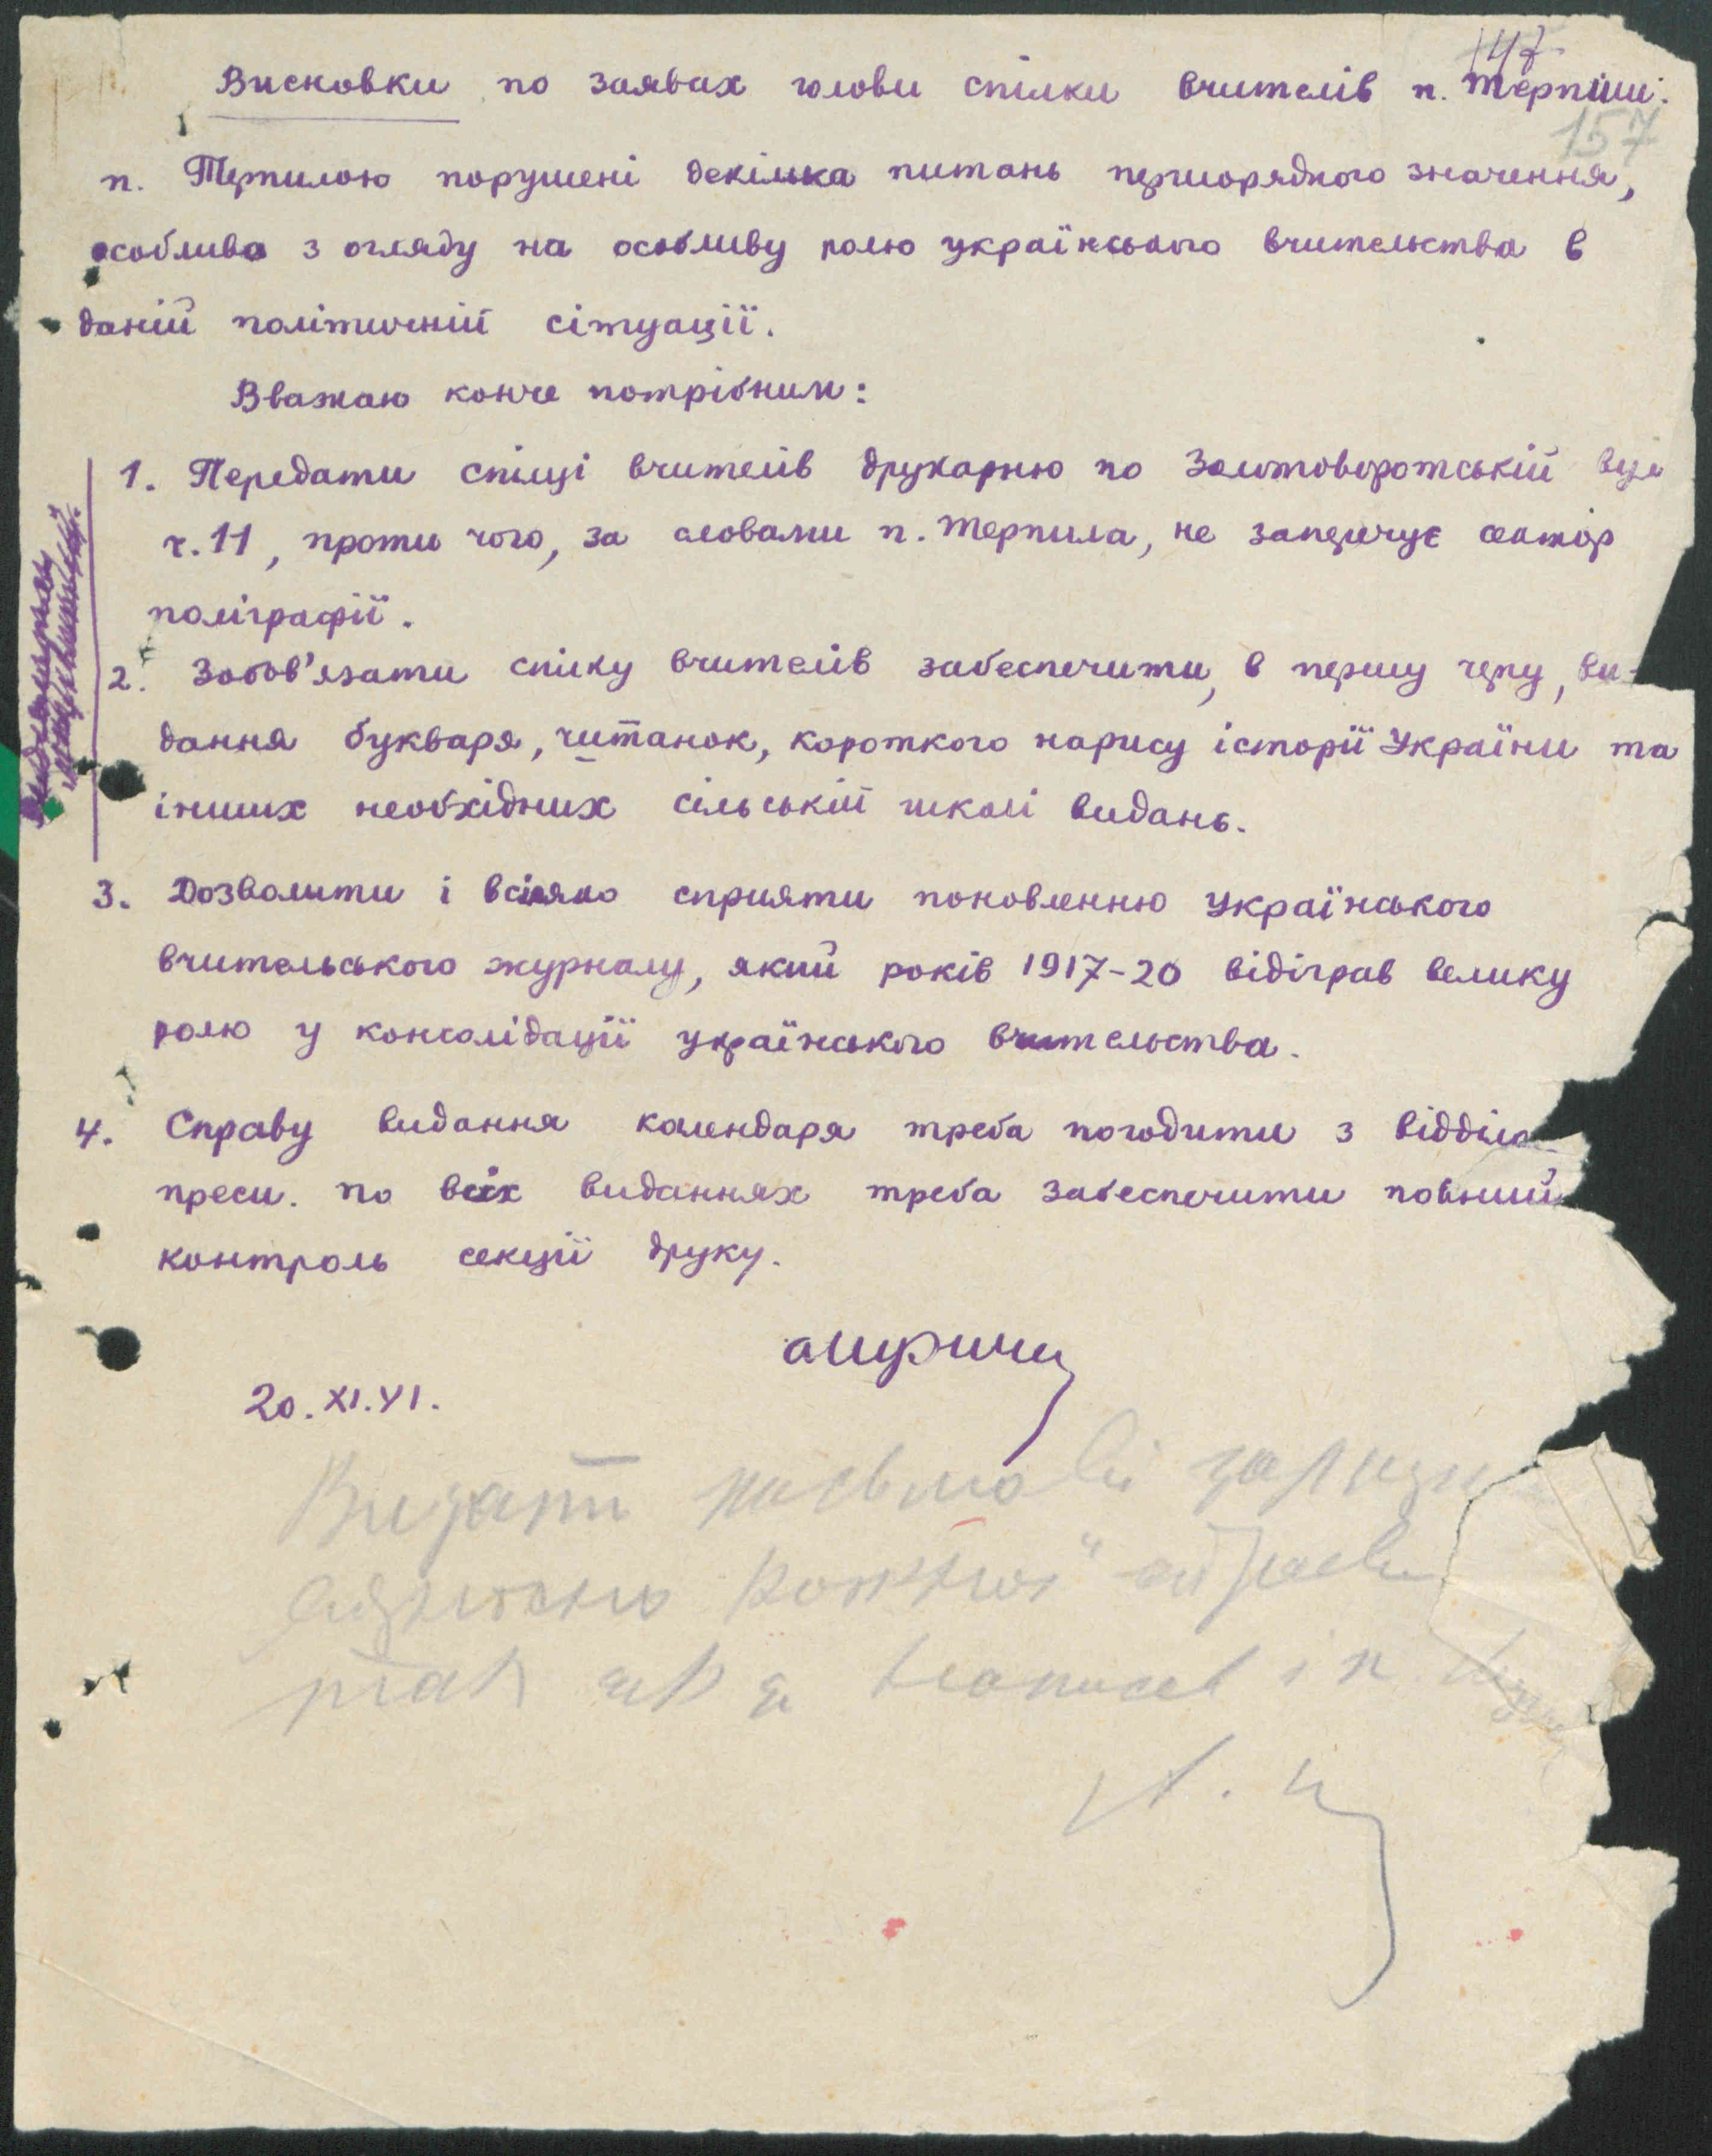 147
Висновки по заявах голови спілки вчителів п. Терпили.
157
п. Терпилою порушені декілька питань першорядного значення,
особливо з огляду на особливу ролю українського вчительства в
даній політичній сітуації.
Вважаю конче потрібним:
1. Передати спілці вчителів друкарню по Золотоворотській вул
ч. 11, проти чого, за словами п. Терпила, не заперечує сектор
поліграфії.
2. Зобов'язати спілку вчителів забеспечити, в першу чергу, ви-
дання букваря, читанок, короткого нарису історії України та
інших необхідних сільській школі видань.
3. Дозволити і всіляко сприяти поновленню Українського
вчительського журналу, який років 1917-20 відіграв велику
ролю у консолідації українського вчительства.
4. Справу видання календаря треба погодити з відділо
преси. по всіх виданнях треба забеспечити повний
контроль секції друку.
20.XI.41.
Видати письмові